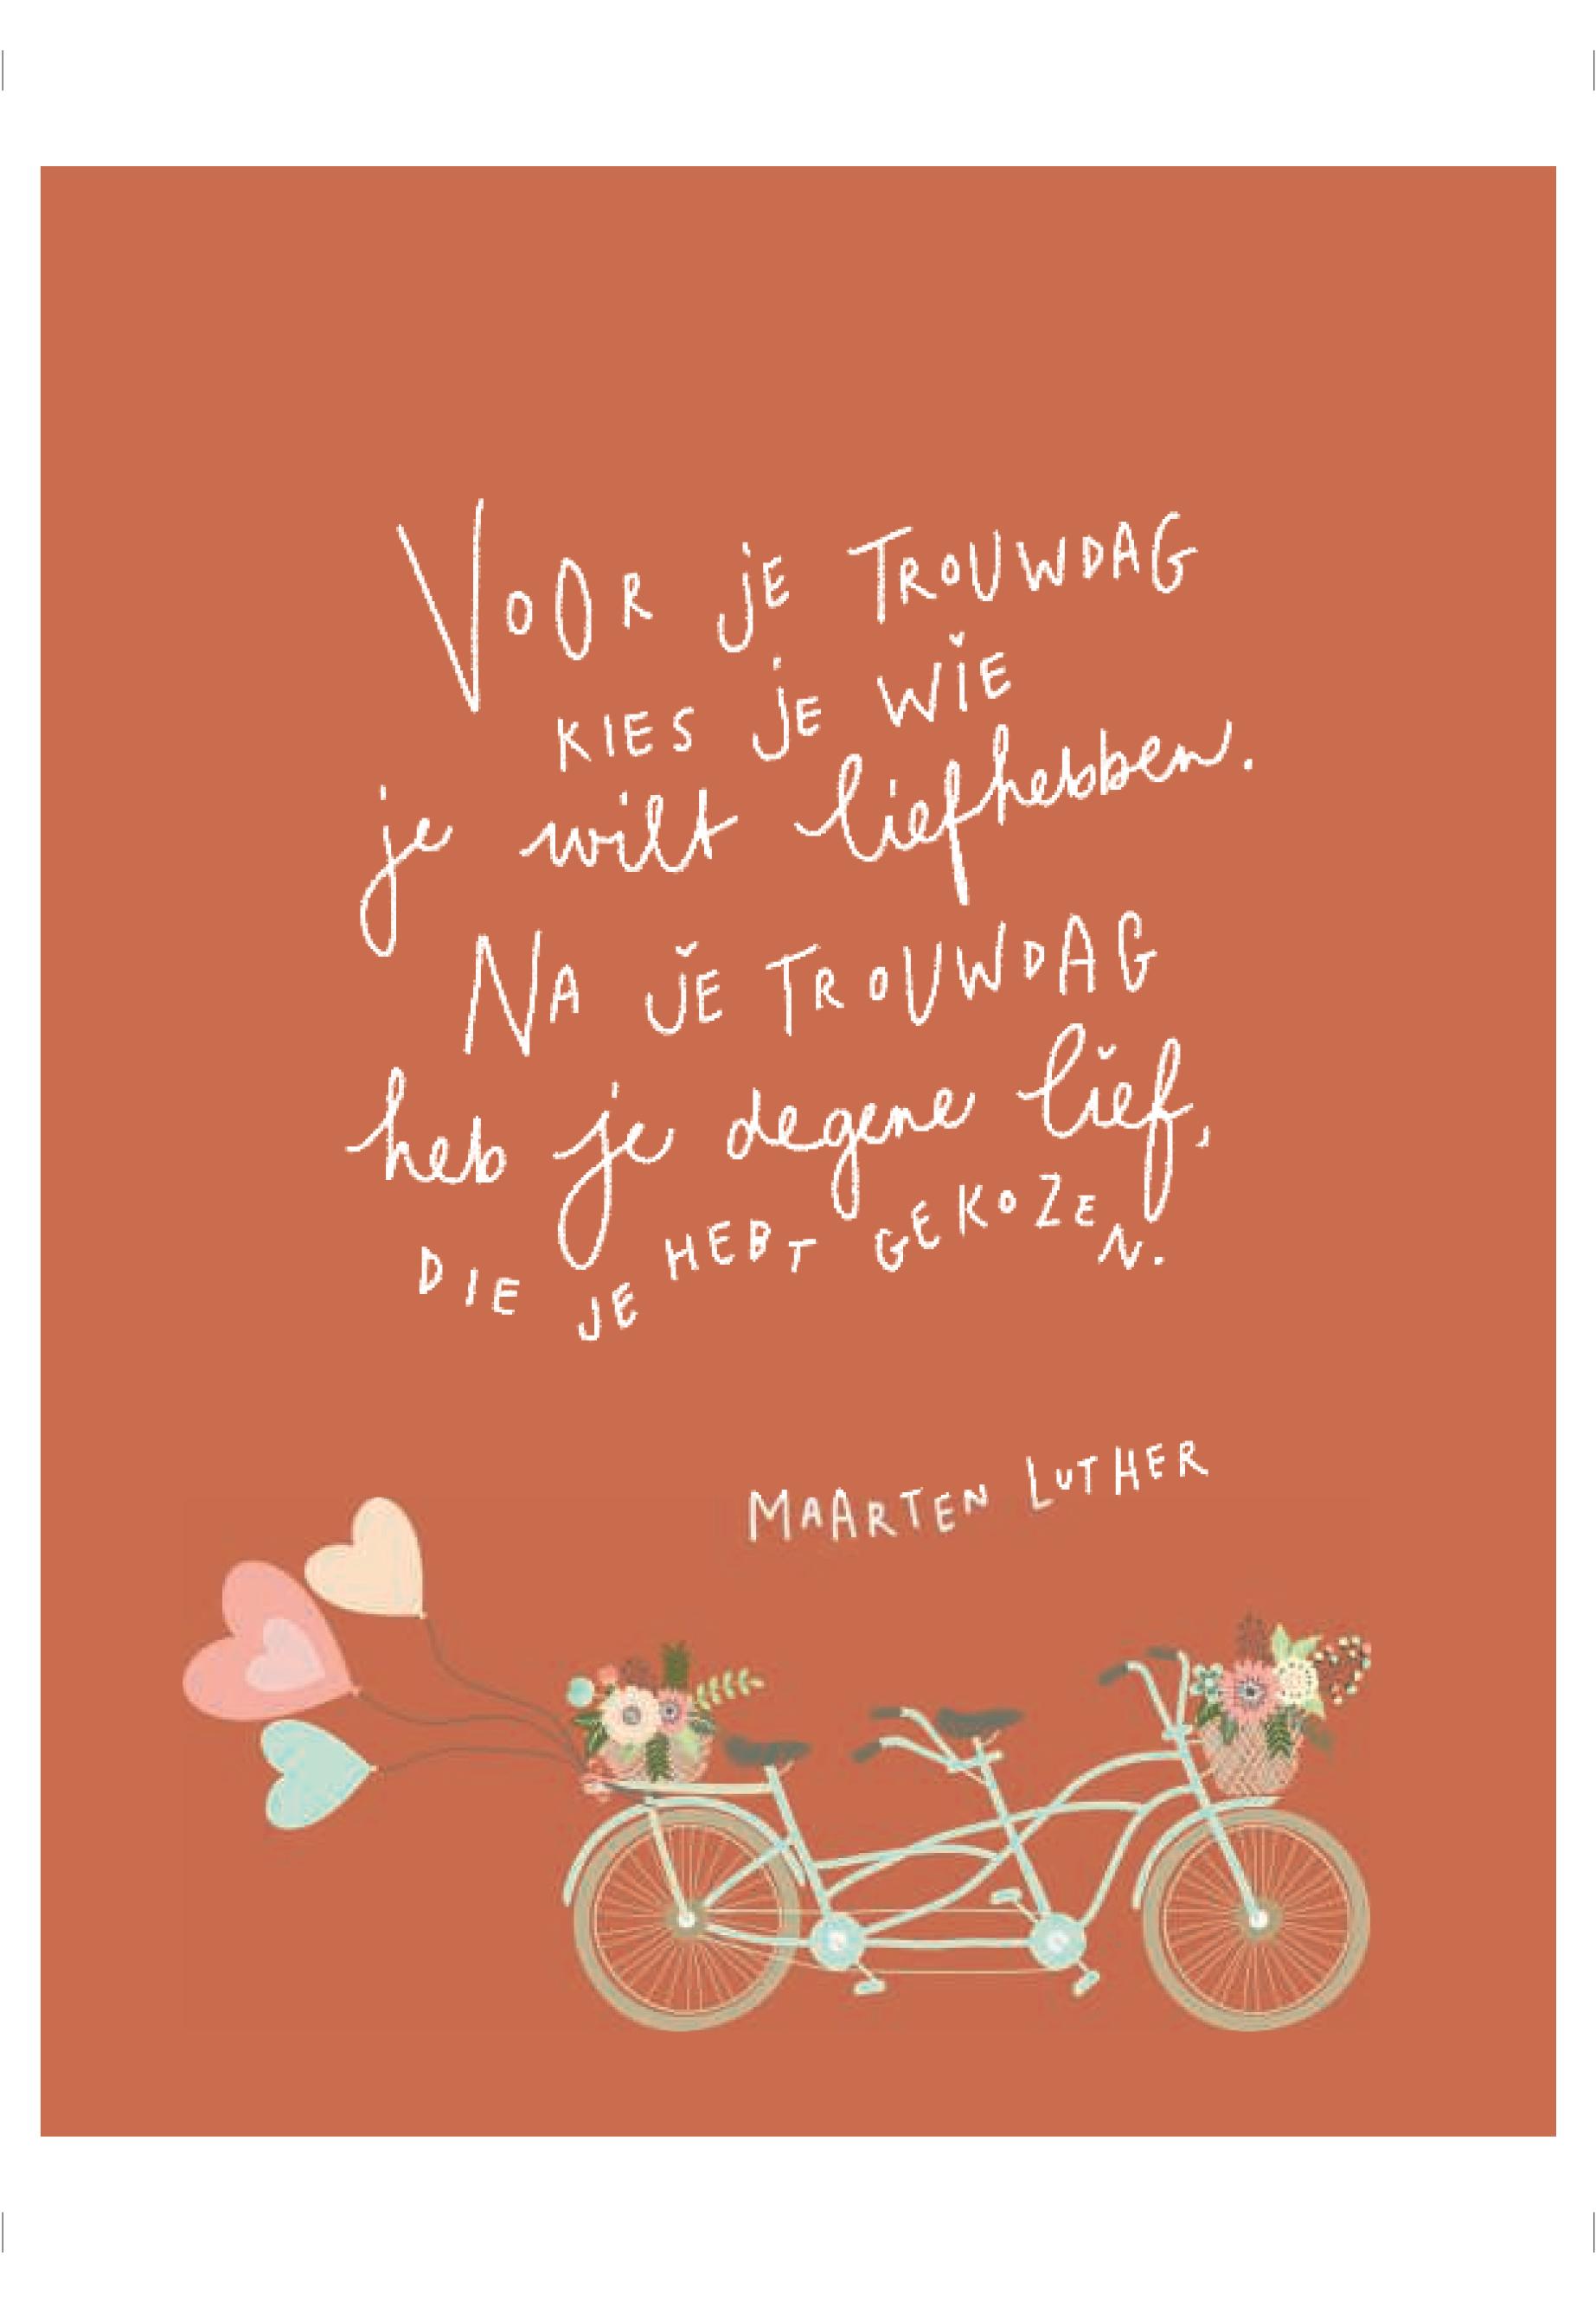 VOOR JE TROUWDAG
KIES JE WIE
je wilt liefhebben.
NA JE TROUWDAG
heb je degene lief,
DIE JE HEBT GEKOZEN.
MAARTEN LUTHER